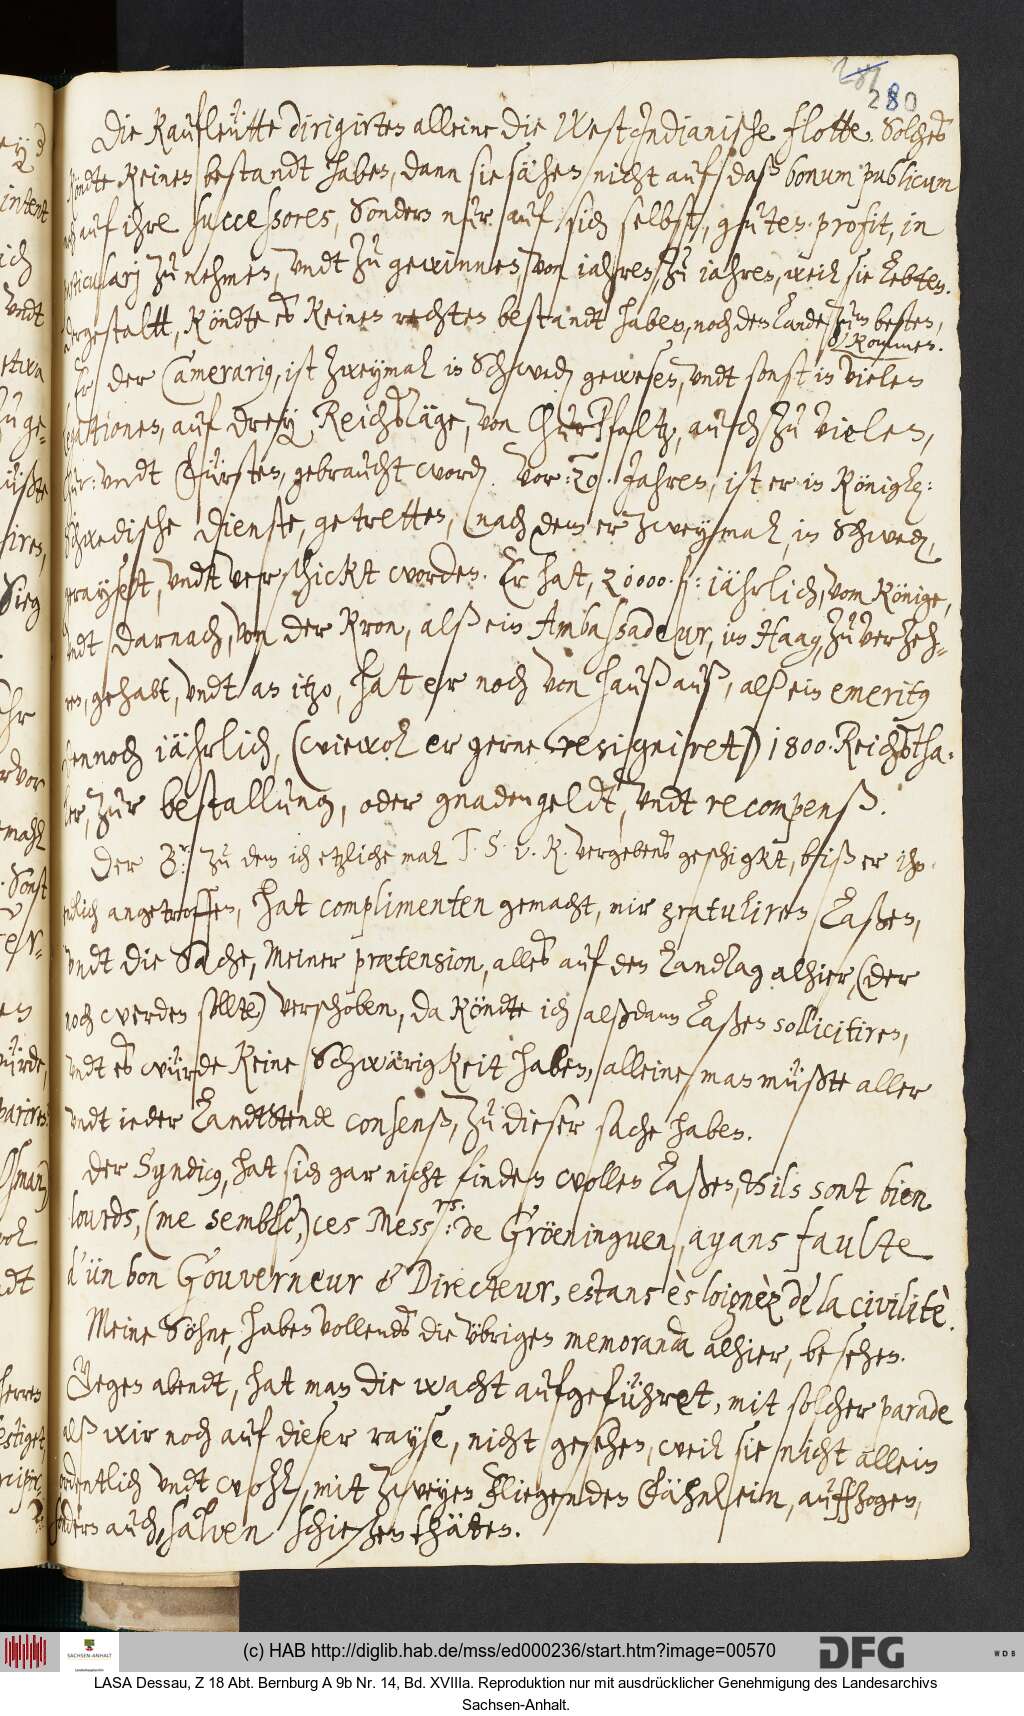 280
Die Kaufleütte dirigirten alleine die WestJndianische flotte. Solches
köndte keinen bestandt haben, dann sie sähen nicht auf daß bonum publicum
noch auf ihre successores, sondern nur auf sich selbst, guten profit, in
particulary zu nehmen, undt zu gewinnen, von iahren, zu iahren, weil sie lebten.
dergestaltt, köndte es keinen rechten bestandt haben, noch dem lande, zum besten,
kommen.
Er der Camerarius, ist zweymal in Schweden gewesen, undt sonst in vielen
legationen, auf drey Reichstäge, von ChurPfaltz, auch zu vielen,
Chur: undt Fürsten, gebraucht worden. Vor: 20. Jahren, ist er in Königlich:
Schwedische dienste, getretten, (nach dem er zweymal, in Schweden,
gerayset, undt verschickt worden. Er hat, 20000. fl: iährlich, vom Könige,
undt darnach, von der Kron, alß ein Ambassadeur, im Haag, zu verzeh-
ren, gehabt, undt an itzo, hat er noch von hauß auß, alß ein emeritus
dennoch iährlich, (wiewol er gerne resigniret) 1800. Reichstha-
ler, zur bestallung, oder gnadengeldt, undt recompenß.
Der B: zu dem ich etzliche mal T. S. v. K. vergebens geschigkt, biß er ihn
endtlich angetroffen, hat complimenten gemacht, mir gratuliren laßen,
undt die Sache, meiner praetension, alles auf den landtag alhier, (der
noch werden sollte) verschoben, da köndte ich alßdann laßen sollicitiren,
undt es würde keine Schwärigkeit haben, alleine man müßte aller
undt ieder Landtstende consenß, zu dieser sache haben.
Der Syndicus, hat sich gar nicht finden wollen laßen, & ils sont bien
lourds, (me semble,) ces Messrs: de Gröeninguen, ayans faulte
d'ün bon Gouverneur & Directeur, estans èsloignèz de la civilitè.
Meine Söhne, haben vollends die übrigen memoranda alhier, besehen.
Gegen abendt, hat man die wacht aufgeführet, mit solcher parade
alß wir noch auf dieser rayse, nicht gesehen, weil sie nicht allein
ordentlich undt wohl, mit zweyen fliegenden Fähnlein, auffzogen,
sondern auch, salven schießen thäten.
(c) HAB http://diglib.hab.de/mss/ed000236/start.htm?image=00570
SACHSEN-ANHALT
DFG
WDB
LASA Dessau, Z 18 Abt. Bernburg A 9b Nr. 14, Bd. XVIIIa. Reproduktion nur mit ausdrücklicher Genehmigung des Landesarchivs
Sachsen-Anhalt.